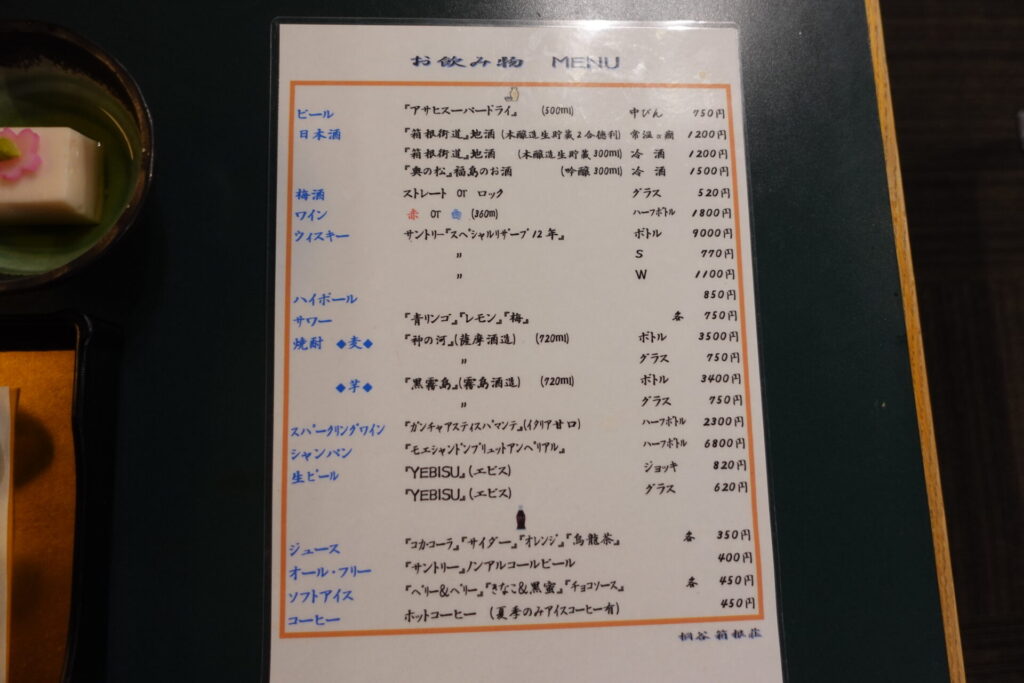 お飲み物 MENU
ビール 『アサヒスーパードライ』 (500ml) 中びん 750円
日本酒 『箱根街道』地酒 (本醸造生貯蔵2合徳利) 常温 or 燗 1200円
『箱根街道』地酒 (本醸造生貯蔵300ml) 冷酒 1200円
『奥の松』福島のお酒 (吟醸300ml) 冷酒 1500円
梅酒 ストレート or ロック グラス 520円
ワイン 赤 or 白 (360m) ハーフボトル 1800円
ウィスキー サントリー『スペシャルリザーブ12年』 ボトル 9000円
〃 S 770円
〃 W 1100円
ハイボール 850円
サワー 『青リンゴ』『レモン』『梅』 各 750円
焼酎 ◆麦◆ 『神の河』(薩摩酒造) (720ml) ボトル 3500円
〃 グラス 750円
◆芋◆ 『黒霧島』(霧島酒造) (720ml) ボトル 3400円
〃 グラス 750円
スパークリングワイン 『ガンチャアスティスパマンテ』(イタリア甘口) ハーフボトル 2300円
シャンパン 『モエシャンドンブリュットアンペリアル』 ハーフボトル 6800円
生ビール 『YEBISU』(エビス) ジョッキ 820円
『YEBISU』(エビス) グラス 620円
ジュース 『コカコーラ』『サイダー』『オレンジ』『烏龍茶』 各 350円
オール・フリー 『サントリー』ノンアルコールビール 400円
ソフトアイス 『ベリー&ベリー』『きなこ&黒蜜』『チョコソース』 各 450円
コーヒー ホットコーヒー (夏季のみアイスコーヒー有) 450円
桐谷箱根荘